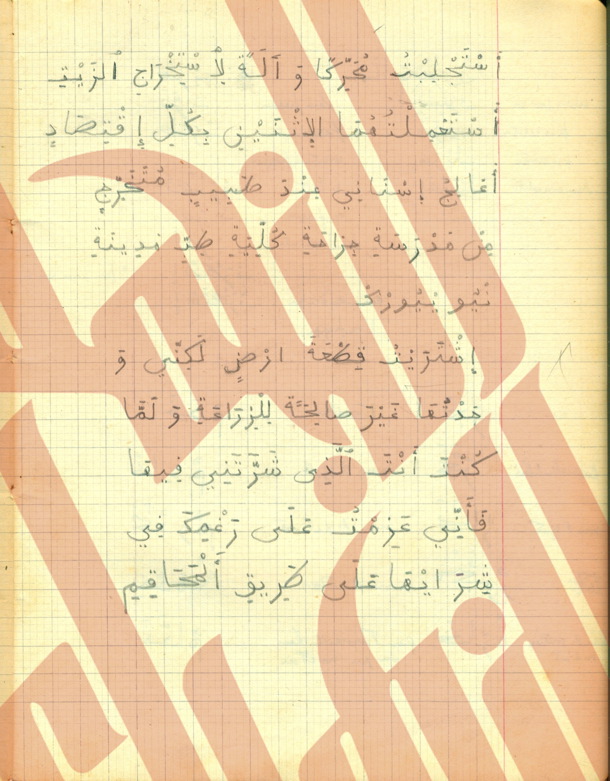 أسْتَجْلِبْتُ مُحَرِّكًا وَ آلَةً لِأسْتِخْرَاجِ الزَيْتِ
أسْتَعْمِلْتُهُمَا الإثْنَيْنِي بِكُلِّ إقْتِصَادٍ
أعَالِجُ إسْنَانِي عِنْدَ طَبِيبٍ مُتَخَرِّجٍ
مِنْ مَدْرَسَةِ جِرَاحَةِ كُلِّيَةِ طِبِّ مَدِينَةِ
نْيُو يْيُورْكْ
إشْتَرَيْتُ قِطْعَةَ ارْضٍ لَكِنِّي وَ
جَدْتُهَا غَيْرَ صَالِحَةً لِلْزِرَاعَةِ وَ لَمَّا
كُنْتَ أنْتَ الَّذِى شَرَّتَنِي فِيهَا
فَأنِّي عَزِمْتُ عَلَى رَغْمِكَ فِي
شِرَائِهَا عَلَى طَرِيقِ ألْمَحَاكِمِ